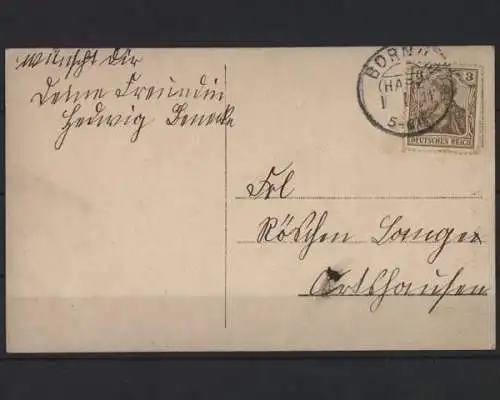 wünscht dir
Deine Freundin
Hedwig Benecke
BORN
(HAR
5-6N
3
DEUTSCHES REICH
Frl
Röschen Langer
Ortshausen